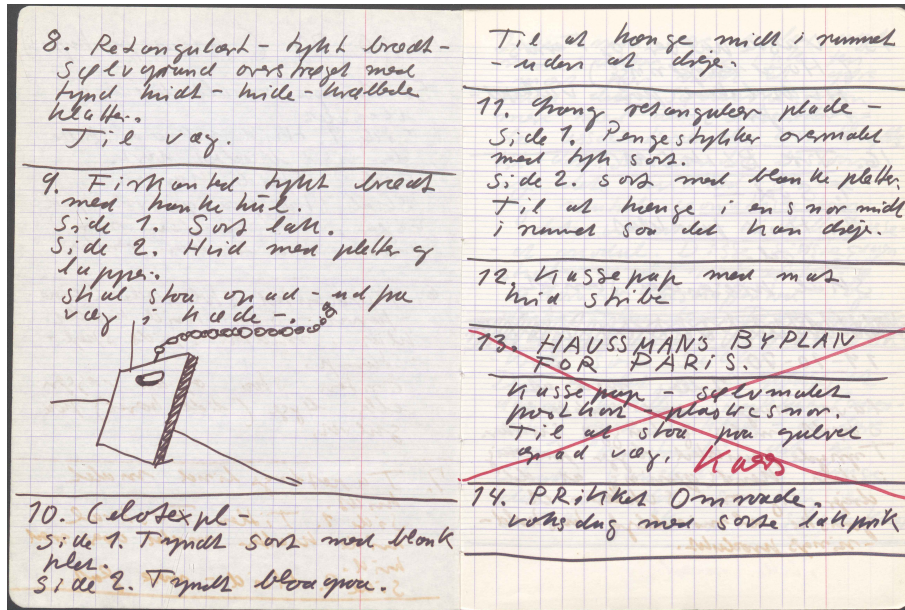 8. Retangulært - tykt brædt -
sølvgrund overstrøget med
tynd hvidt - hvide - krællede
klatter.
Til væg.
9. Firkanted tykt brædt
med hanke hul.
Side 1. Sort lak.
Side 2. Hvid med pletter og
lapper.
skal staa op ad - ud paa
væg i kæde -.
10. Celotexpl -
side 1. Tyndt sort med blank
plet.
side 2. Tyndt blaagraa.
Til at hænge midt i rummet
- uden at dreje.
11. Lang retangulær plade -
Side 1. Pengestykker overmalet
med tyk sort.
Side 2. sort med blanke pletter.
Til at hænge i en snor midt
i rummet saa det kan dreje.
12. Kassepap med mat
hvid stribe
13. HAUSSMANS BYPLAN
FOR PARIS.
Kassepap - sølvmalet
postkort - plasticsnor.
Til at staa paa gulvet
op ad væg. Kass
14. PRikket Omraade.
voksdug med sorte lakprik